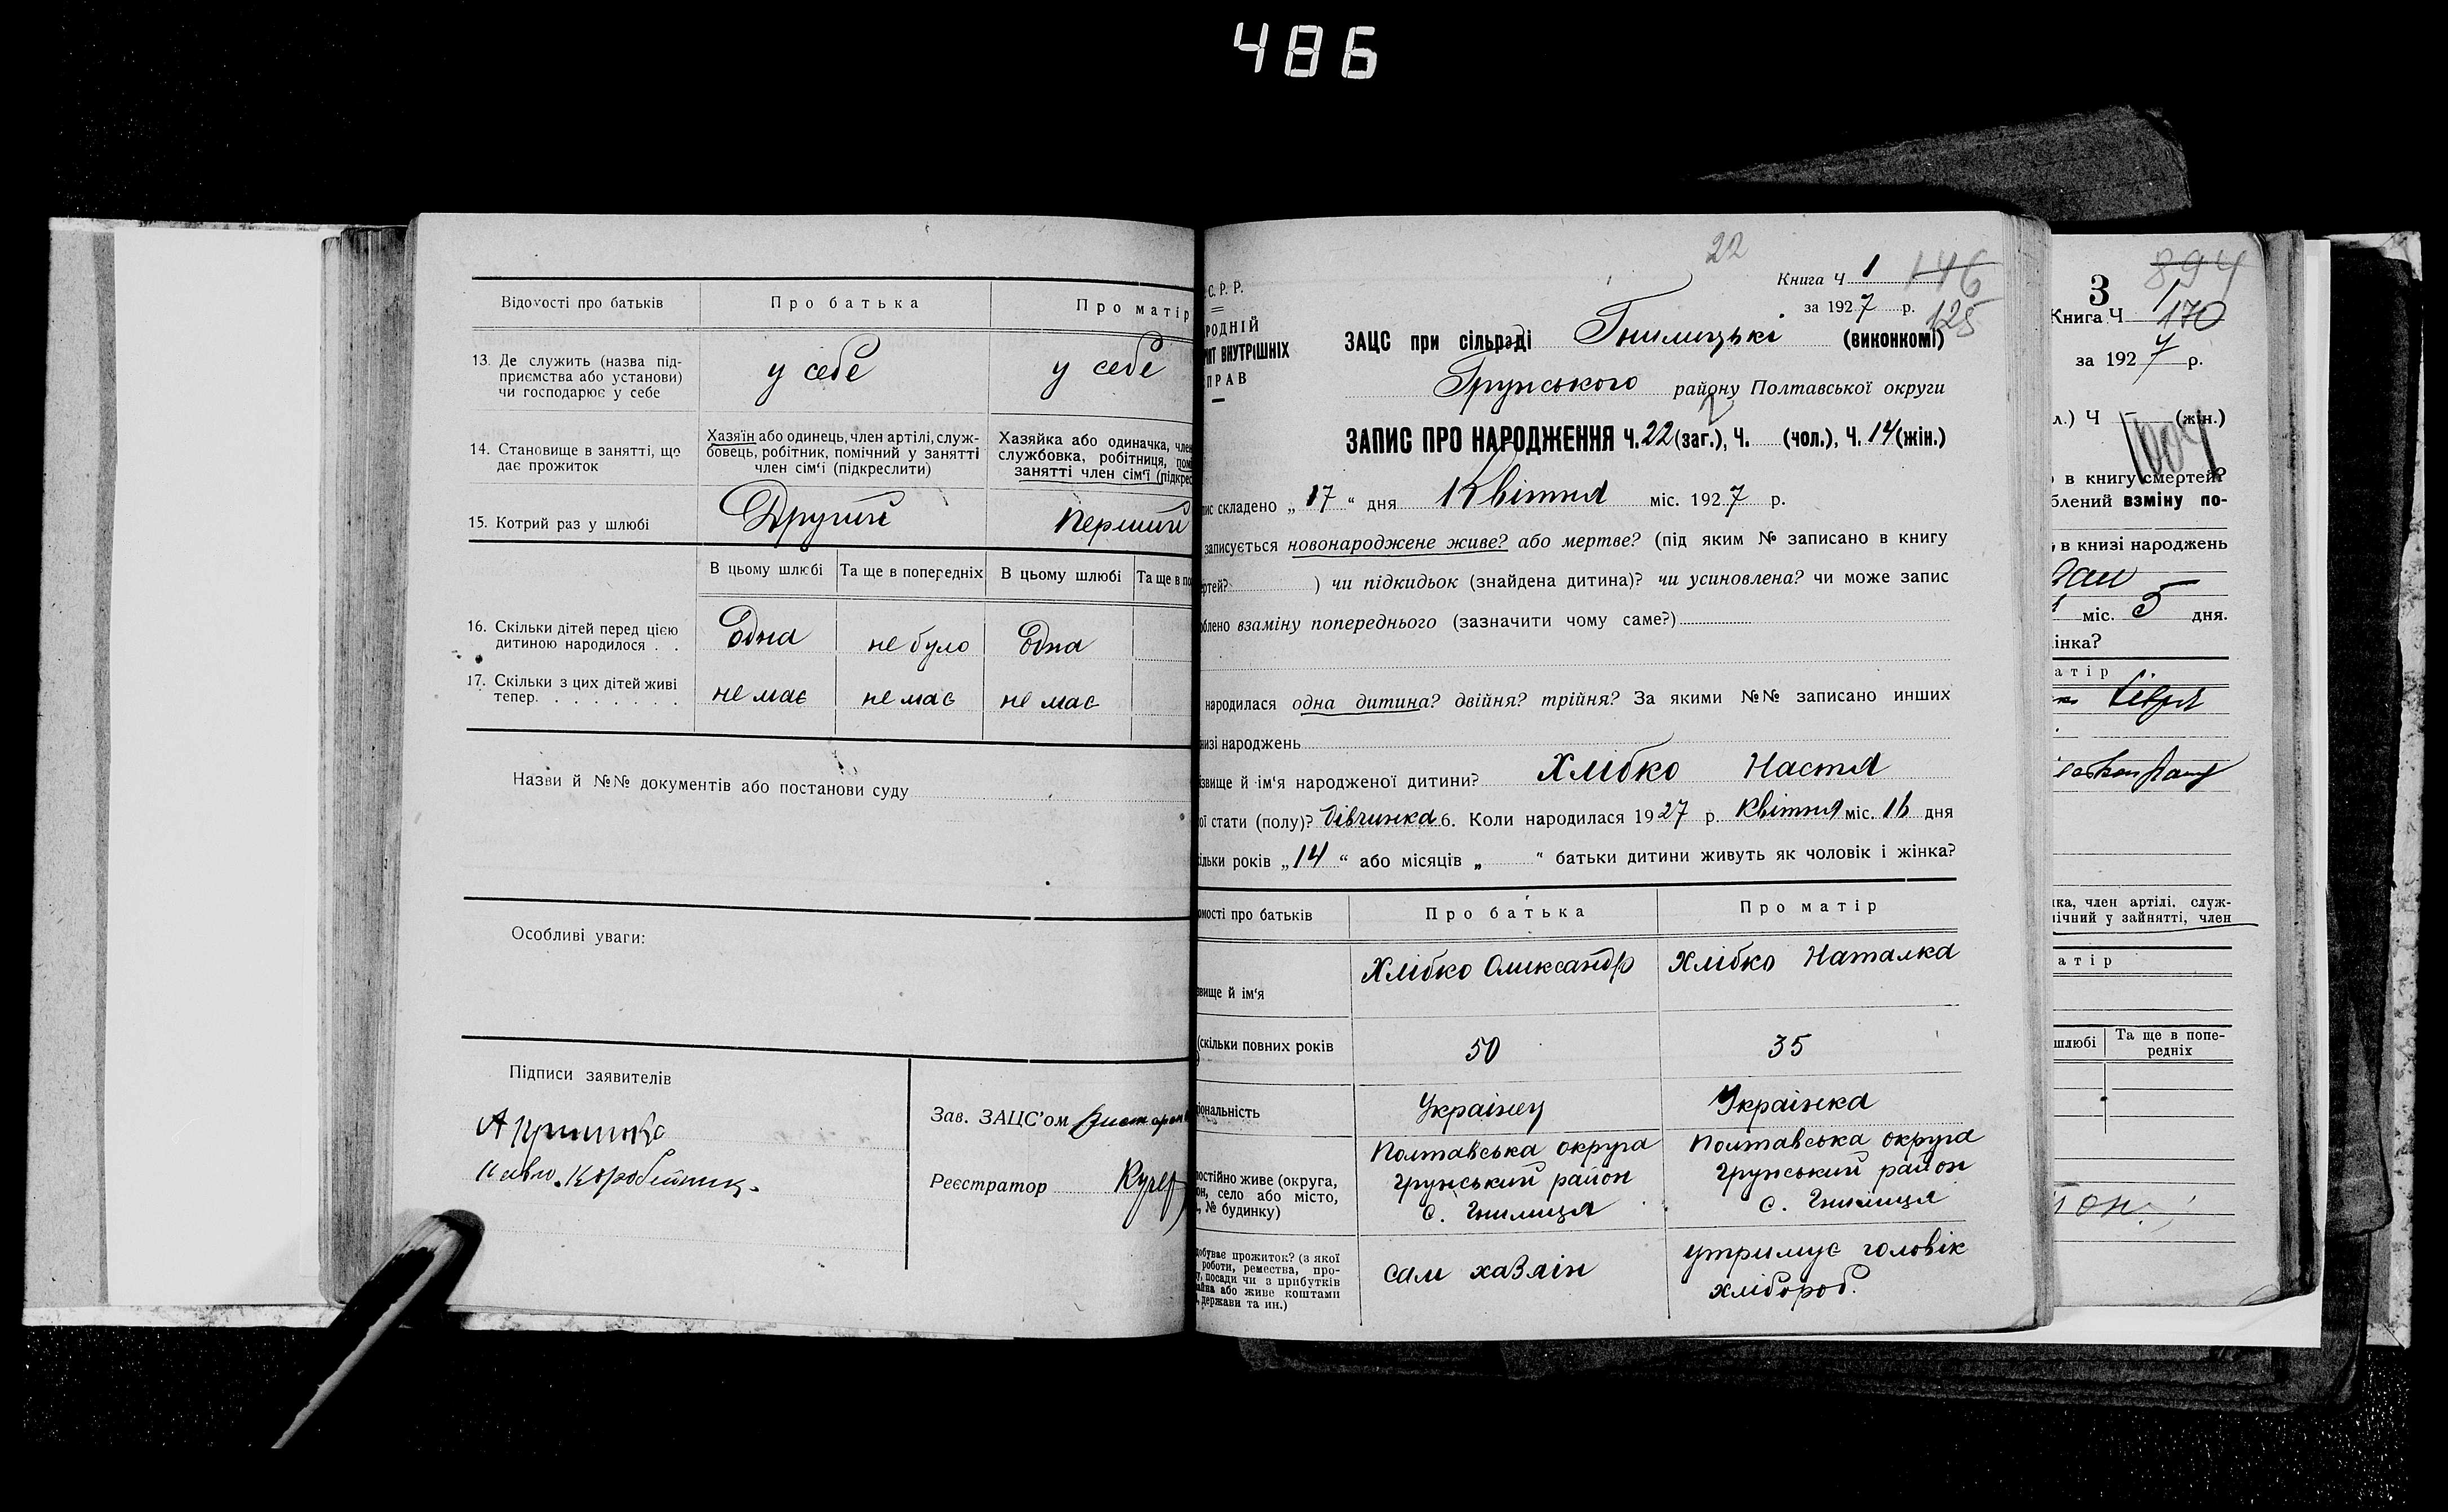 486
Відомості про батьків
Про батька
Про матір
13. Де служить (назва під-
приємства або установи)
чи господарює у себе
у себе
у себе
14. Становище в занятті, що
дає прожиток
Хазяїн або одинець, член артілі, служ-
бовець, робітник, помічний у занятті
член сім'ї (підкреслити)
Хазяйка або одиначка, член
службовка, робітниця, пом
занятті член сім'ї (підкрес
15. Котрий раз у шлюбі
Другий
перший
В цьому шлюбі
Та ще в попередніх
В цьому шлюбі
Та ще в по
16. Скільки дітей перед цією
дитиною народилося . .
Одна
не було
Одна
17. Скільки з цих дітей живі
тепер. . . . . . . .
не має
не має
не має
Назви й №№ документів або постанови суду
Особливі уваги:
Підписи заявителів
Зав. ЗАЦС'ом
Реєстратор Кучер
22
Книга Ч 1 146
за 1927 р. 125
С. Р. Р.
РОДНІЙ
ВНУТРІШНІХ
ПРАВ
ЗАЦС при сільраді Гнилицькі (виконкомі)
Грунського району Полтавської округи
ЗАПИС ПРО НАРОДЖЕННЯ Ч. 22 (заг.), Ч. (чол.), Ч. 14 (жін.)
пис складено „17“ дня Квітня міс. 1927 р.
записується новонароджене живе? або мертве? (під яким № записано в книгу
ртей? ) чи підкидьок (знайдена дитина)? чи усиновлена? чи може запис
облено взаміну попереднього (зазначити чому саме?)
народилася одна дитина? двійня? трійня? За якими №№ записано инших
низі народжень
звище й ім'я народженої дитини? Хлібко Настя
ої стати (полу)? дівчинка 6. Коли народилася 1927 р. Квітня міс. 16 дня
ільки років „14“ або місяців „ “ батьки дитини живуть як чоловік і жінка?
омості про батьків
Про батька
Про матір
звище й ім'я
Хлібко Олександр
Хлібко Наталка
(скільки повних років
50
35
ціональність
Українец
Українка
постійно живе (округа,
он, село або місто,
, № будинку)
Полтавська округа
Грунський район
с. Гнилиця
Полтавська округа
Грунський район
с. Гнилиця
добуває прожиток? (з якої
роботи, ремества, про-
у, посади чи з прибутків
айна або живе коштами
, держави та ин.)
сам хазяїн
утримує чоловік
хлібороб.
3
894
Книга Ч 1
170
за 1927 р.
л.) Ч (жін.)
в книгу смертей?
блений взміну по-
в книзі народжень
міс. 5 дня.
інка?
атір
ка, член артілі, служ-
ічний у зайнятті, член
атір
шлюбі
Та ще в попе-
редніх